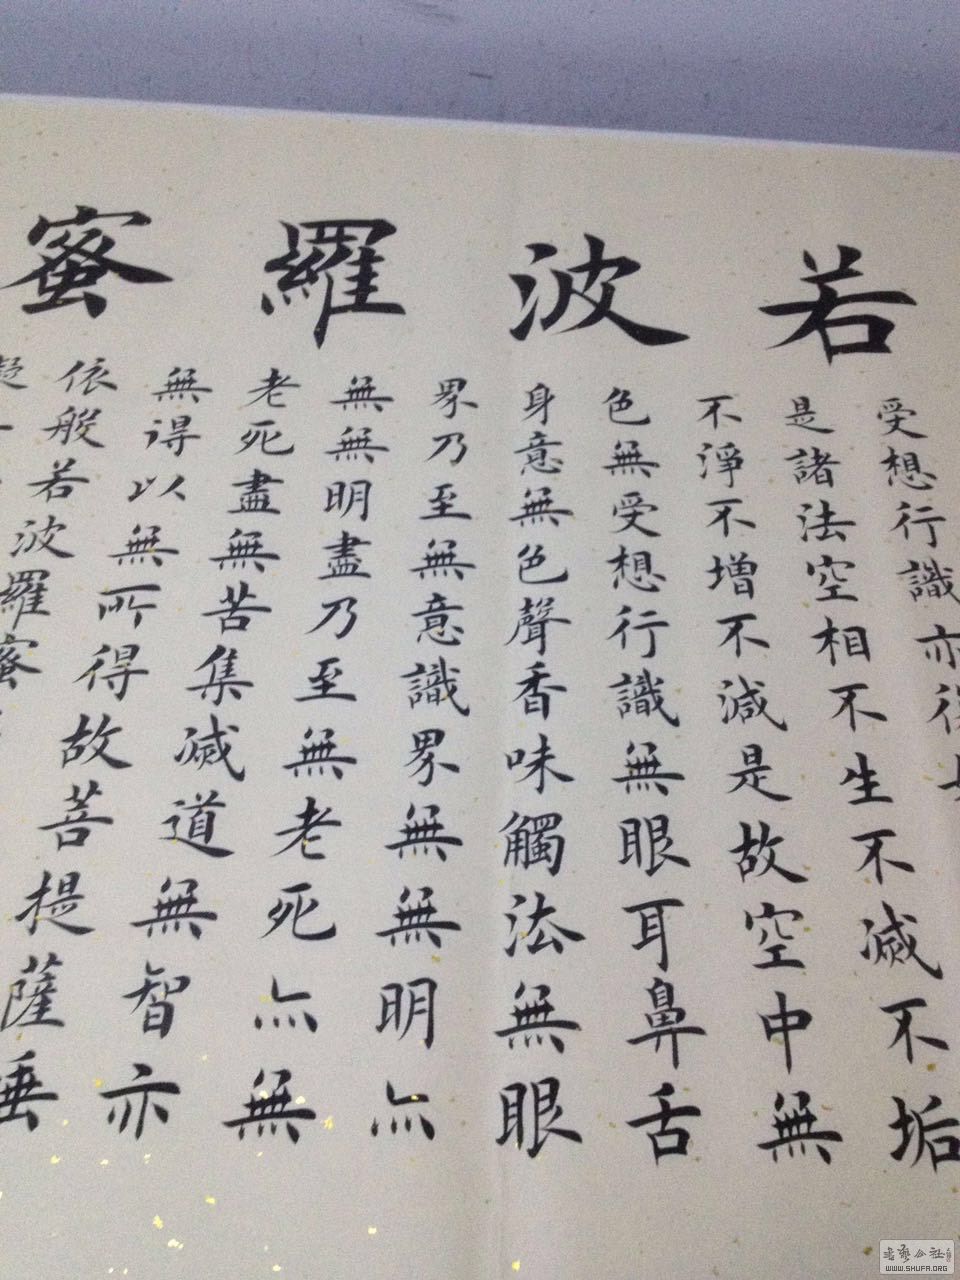 若波羅蜜
受想行識亦復
是諸法空相不生不滅不垢
不淨不增不減是故空中無
色無受想行識無眼耳鼻舌
身意無色聲香味觸法無眼
界乃至無意識界無無明亦
無無明盡乃至無老死亦無
老死盡無苦集滅道無智亦
無得以無所得故菩提薩埵
依般若波羅蜜
WWW.SHUFA.ORG